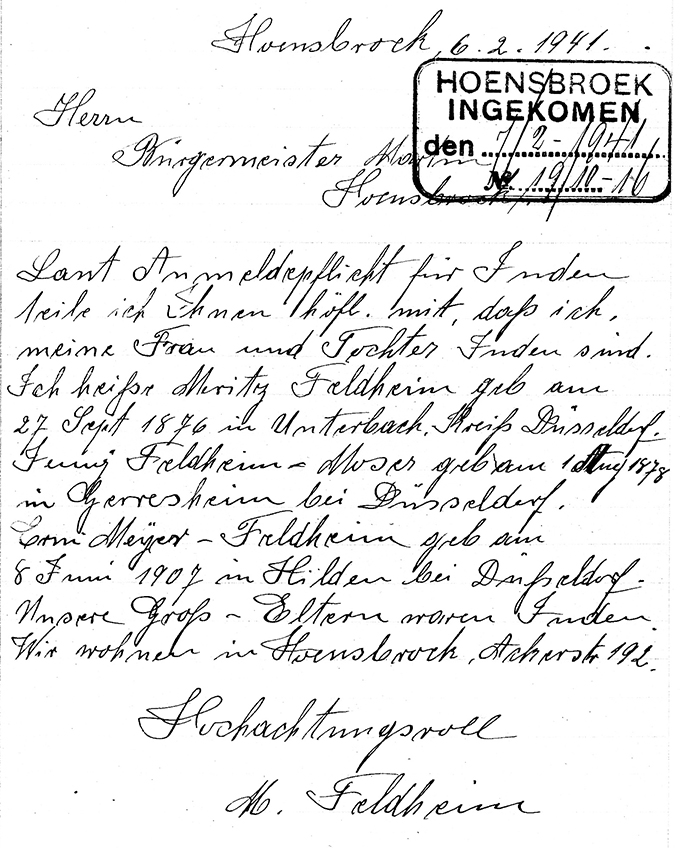 Hoensbrock, 6.2.1941.
HOENSBROEK
INGEKOMEN
den 7/2-1941
No. 19/10-16
Herrn
Bürgermeister Martin
Hoensbrock
Laut Anmeldepflicht für Juden
teile ich Ihnen höfl. mit, daß ich,
meine Frau und Tochter Juden sind.
Ich heiße Moritz Feldheim geb am
27 Sept 1876 in Unterbach, Kreiß Düsseldorf.
Jenny Feldheim - Moser geb am 1 Aug 1878
in Gerresheim bei Düsseldorf.
Erni Meyer - Feldheim geb am
8 Juni 1907 in Hilden bei Düßeldorf.
Unsere Groß - Eltern waren Juden.
Wir wohnen in Hoensbrock, Ackerstr 192.
Hochachtungsvoll
M. Feldheim